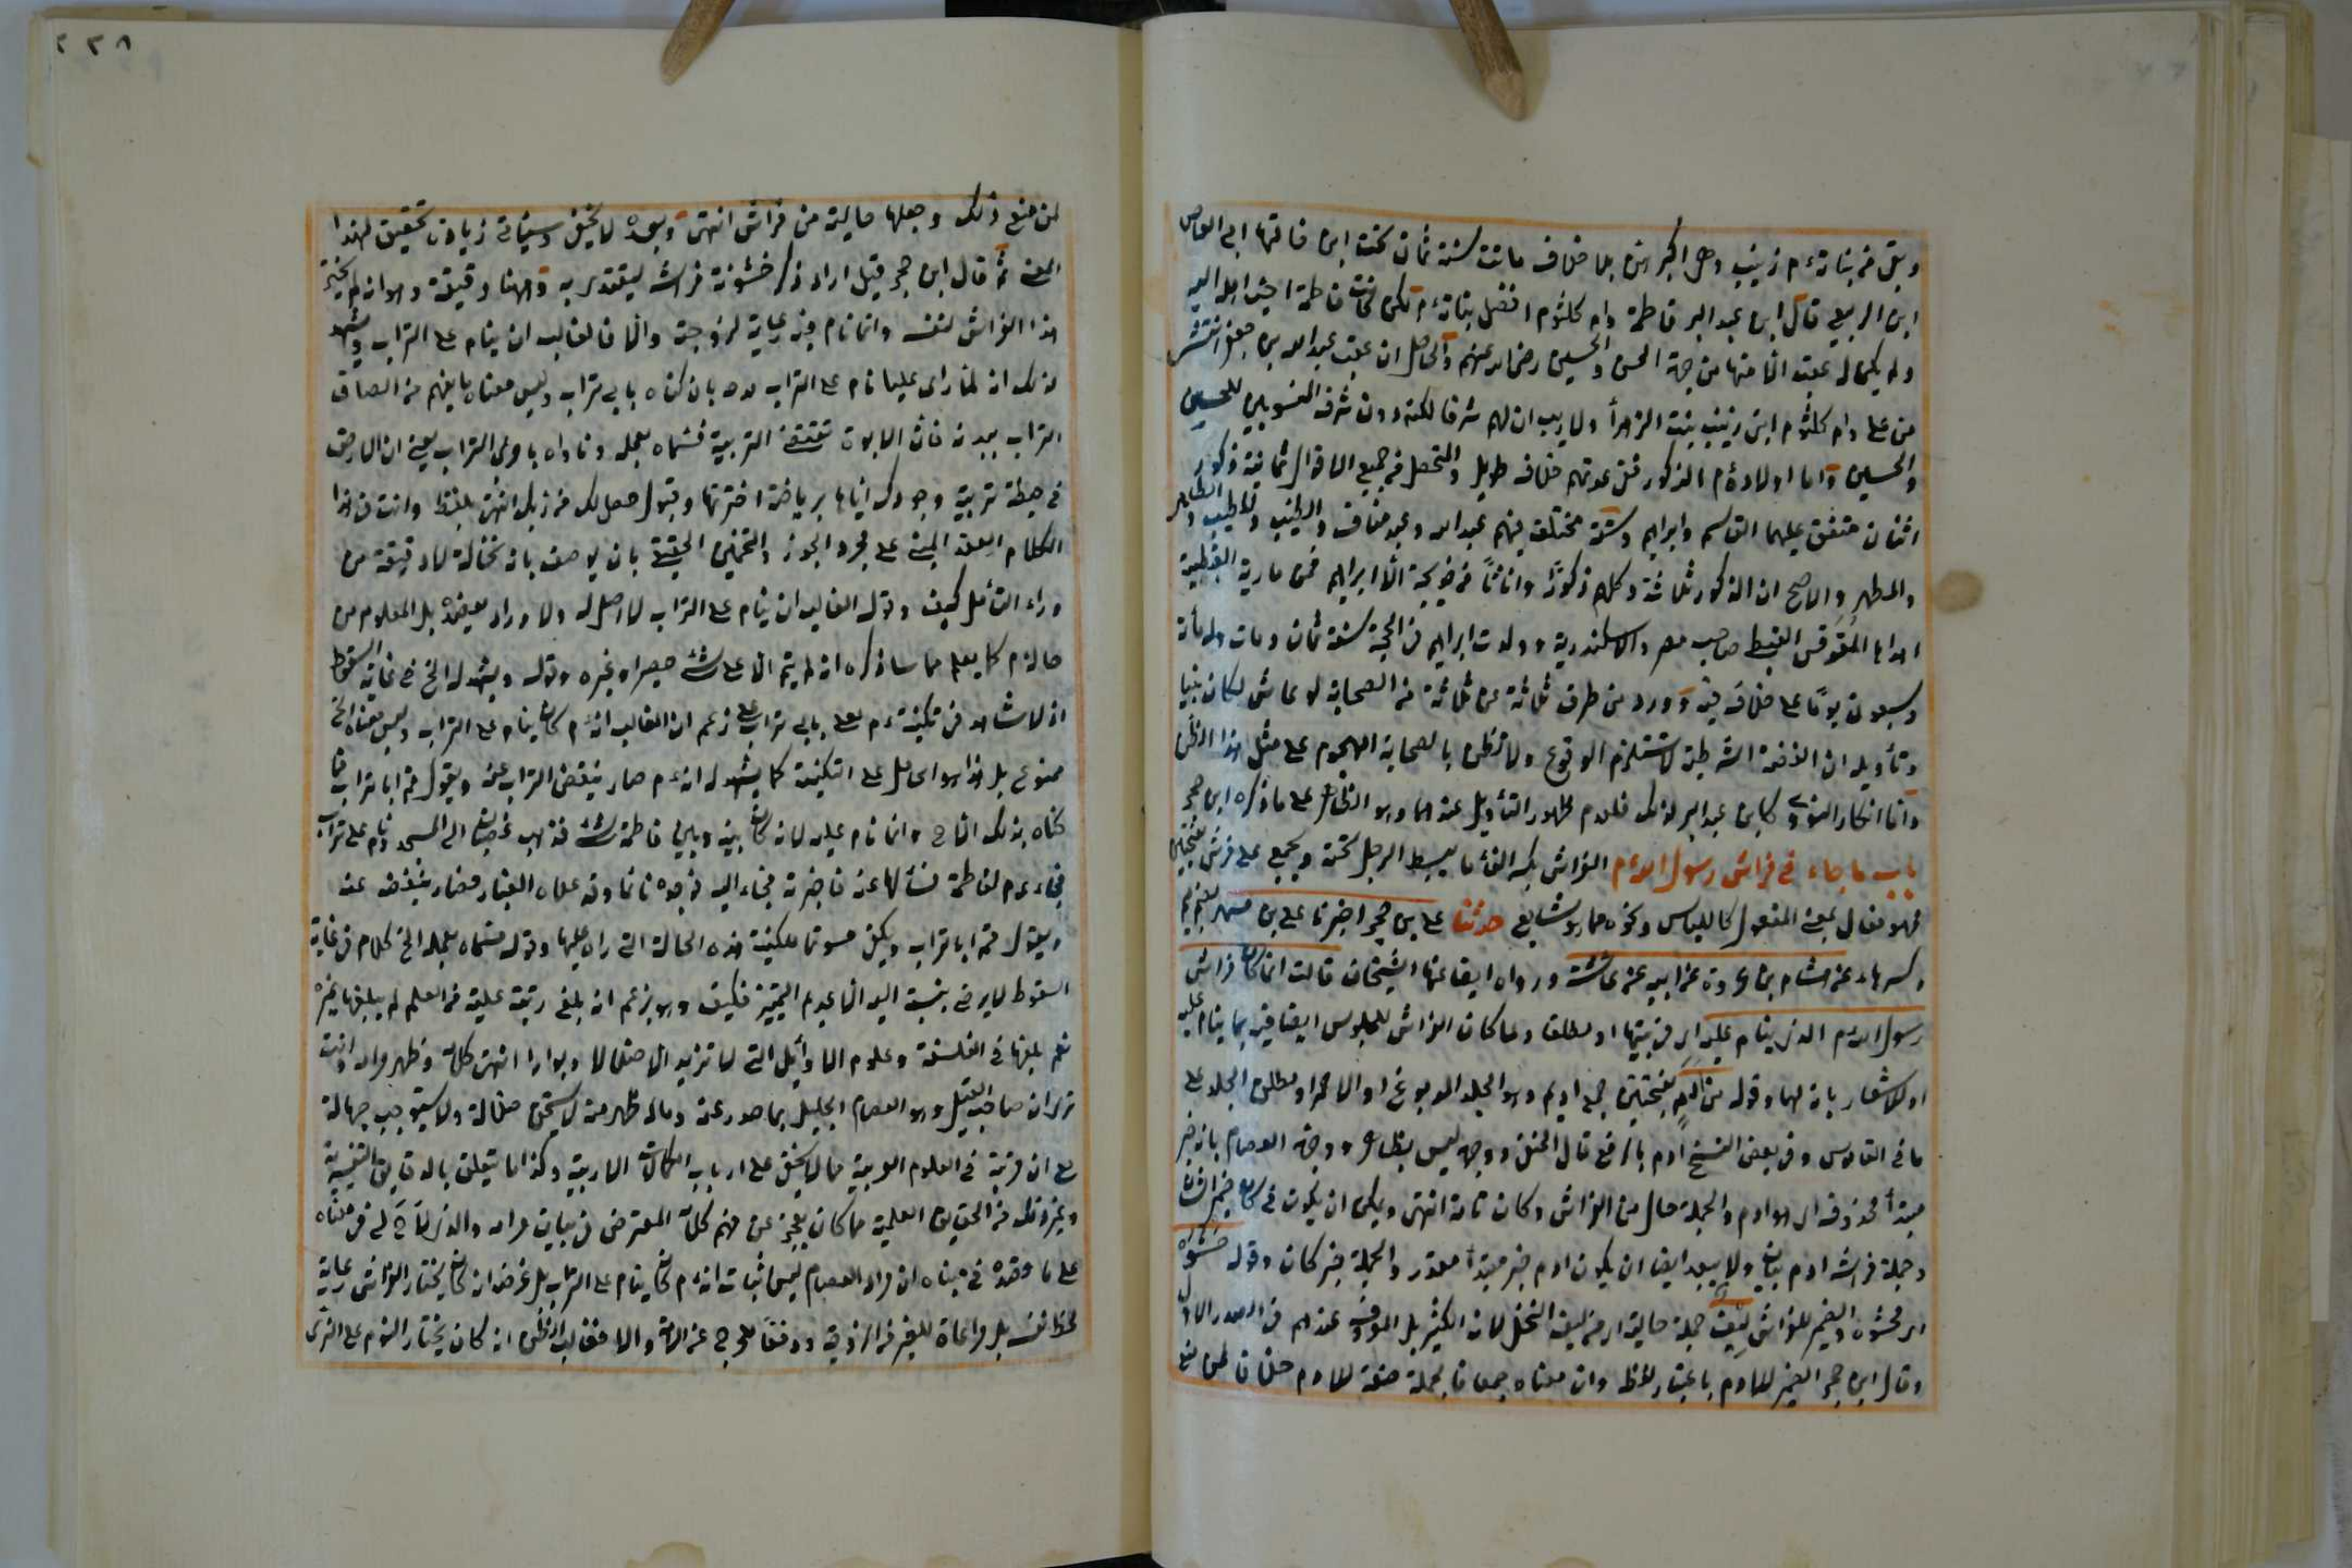 وبقي من بناته ءم زينب وهي اكبرهن بلا خلاف ماتت سنة ثمان تحت ابن خالتها ابي العاص
ابن الربيع قال ابن عبد البر فاطمة وام كلثوم افضل بناته ءم لكن كانت فاطمة احب اهله اليه
ولم يكن له عقب الا منها من جهة الحسن والحسين رضي الله عنهم والحاصل ان عقب عبد الله بن جعفر انتشر
من علي وام كلثوم ابني زينب بنت الزهرأ ولا ريب ان لهم شرفا لكنه دون شرف المنسوبين للحسن
والحسين واما اولاده ءم الذكور ففي عدتهم خلاف طويل والمتحصل من جميع الاقوال ثمانية ذكور
اثنان متفق عليهما القاسم وابراهيم وستة مختلف فيهم عبد الله وعبد مناف والطيب والمطيب والطاهر
والمطهر والاصح ان الذكور ثلاثة وكلهم ذكورًا واناثًا من خديجة الا ابراهيم فمن مارية القبطية
اهداها المقوقس القبط صاحب مصر والاسكندرية وولدت ابراهيم في الحجة سنة ثمان ومات وله مأة
وسبعون يومًا على خلاف فيه وورد من طرق ثلاثة عن ثلاثة من الصحابة لو عاش لكان نبيا
وتأويله ان القضية الشرطية لا تستلزم الوقوع ولا نظن بالصحابة الهجوم على مثل هذا الظن
واما انكار النووي كابن عبد البر لذلك فلعدم ظهور التأويل عندهما وهو الظاهر على ما ذكره ابن حجر
باب ما جاء في فراش رسول الله ءم الفراش بكسر الفاء ما يبسط الرجل تحته ويجمع على فرش بضمتين
فهو فعال بمعنى المفعول كاللباس ونحوه مما هو شايع حدثنا علي بن حجر اخبرنا علي بن مسهر بضم ميم
وكسر هاء عن هشام بن عروة عن ابيه عن عائشة ورواه ايضا عنها الشيخان قالت انما كان فراش
رسول الله ءم الذي ينام عليه اي في بيتها او مطلقا ولما كان الفراش للجلوس ايضا قيد بما ينام عليه
او للاشعار بانه لهما وقوله من ادم بفتحتين جمع اديم وهو الجلد المدبوغ او الاحمر او مطلق الجلد على
ما في القاموس وفي بعض النسخ ادم بالرفع قال الحنفي ووجهه ليس بظاهر ووجهه العصام بانه خبر
مبتدأ محذوف اي هو ادم والجملة حال من الفراش وكان تامة انتهى ويمكن ان يكون في كان ضمير الشان
وجملة فراشه ادم بيان ولا يبعد ايضا ان يكون ادم خبر مبتدأ مقدر والجملة خبر كان وقوله حشوه
اي محشوه والضمير للفراش ليف جملة حالية اي من ليف النخل لانه الكثير بل المعروف عندهم في الصدر الاول
وقال ابن حجر الضمير للادم باعتبار لفظه وان معناه جمعا فالجملة صفة للادم خلافا لمن منع
لمن منع ذلك وجعلها حالية من فراش انتهى وبعده لا يخفى وسيأتي زيادة تحقيق لهذا
المعنى ثم قال ابن حجر قيل اراد ذكر خشونة فراشه ليقتدي به وههنا دقيقة وهو انه لم يختر
هذا الفراش لنفسه وانما نام فيه رعاية لزوجته والا فالغالب ان ينام على التراب ويشهد
لذلك انه لما رأى عليا نام على التراب مدحه بان كناه بابي تراب وليس معناه ما يفهم من الصاق
التراب ببدنه فان الابوة تقتضي التربية فسماه بعمله وناداه يا مربي التراب يعني ان الارض
في حيطة تربيته وجودك اياها برياضة اخترتها وقبول حصل لك من ربك انتهى بلفظه وانت في هذا
الكلام العقد المبني على مجرد الجوز والتخمين الحقيق بان يوصف بانه نخالة لا دقيقة من
وراء التأمل كيف وقوله الغالب ان ينام على التراب لا اصل له ولا وارد يعضده بل المعلوم من
حاله ءم كما يعلم مما ساذكره انه لم ينم الا على شئ حصير او غيره وقوله ويشهد له الخ في غاية السقوط
اذ لا شاهد في تكنيته ءم لعلي بابي تراب على زعم ان الغالب انه ءم كان ينام على التراب وليس معناه الخ
ممنوع بل هذا هو الحامل على التكنية كما يشهد له انه ءم صار ينفض التراب عنه ويقول قم ابا تراب فما
كناه بذلك الا ح وانما نام عليه لانه كان بينه وبين فاطمة شئ فذهب غضبان الى المسجد ونام على ترابه
فجاء ءم لفاطمة فسألها عنه فاخبرته فجاء اليه فوجده نائما وقد علاه الغبار فصار ينفضه عنه
ويقول قم ابا تراب ويكفي مسوغا للكنية هذه الحالة التي رآه عليها وقوله فسماه بعمله الخ كلام في غاية
السقوط لا يرضى بنسبته اليه الا عديم التمييز فكيف وهو يزعم انه بلغ رتبة علية من العلم لم يبلغها غيره
نعم بلغها في الفلسفة وعلوم الاوائل التي لا تزيد الا ضلالا وبوارا انتهى كلامه وظهر مرامه وانت
ترى ان صاحب القيل وهو العصام الجليل بما صدر عنه وماله ظهر منه لا يستحق ضلالة ولا يستوجب جهالة
على ان مرتبته في العلوم العربية مما لا يخفى على ارباب الكمالات الادبية وكذا ما يتعلق بالدقايق التفسيرية
وغير ذلك من الحقايق العلمية مما كان يعجز عن فهم كلامه المعترض في بيان مرامه والذي لاح لي في معناه
على ما قصده في مبناه ان مراد العصام ليس اثبات انه ءم كان ينام على التراب بل غرضه انه كان يختار الفراش رعاية
لحظ نفسه بل مراعاة للغير من الزوجة ودفعًا للحرج عن الامة والا فغالب الظن انه كان يختار النوم على الثرى
٢٢٨